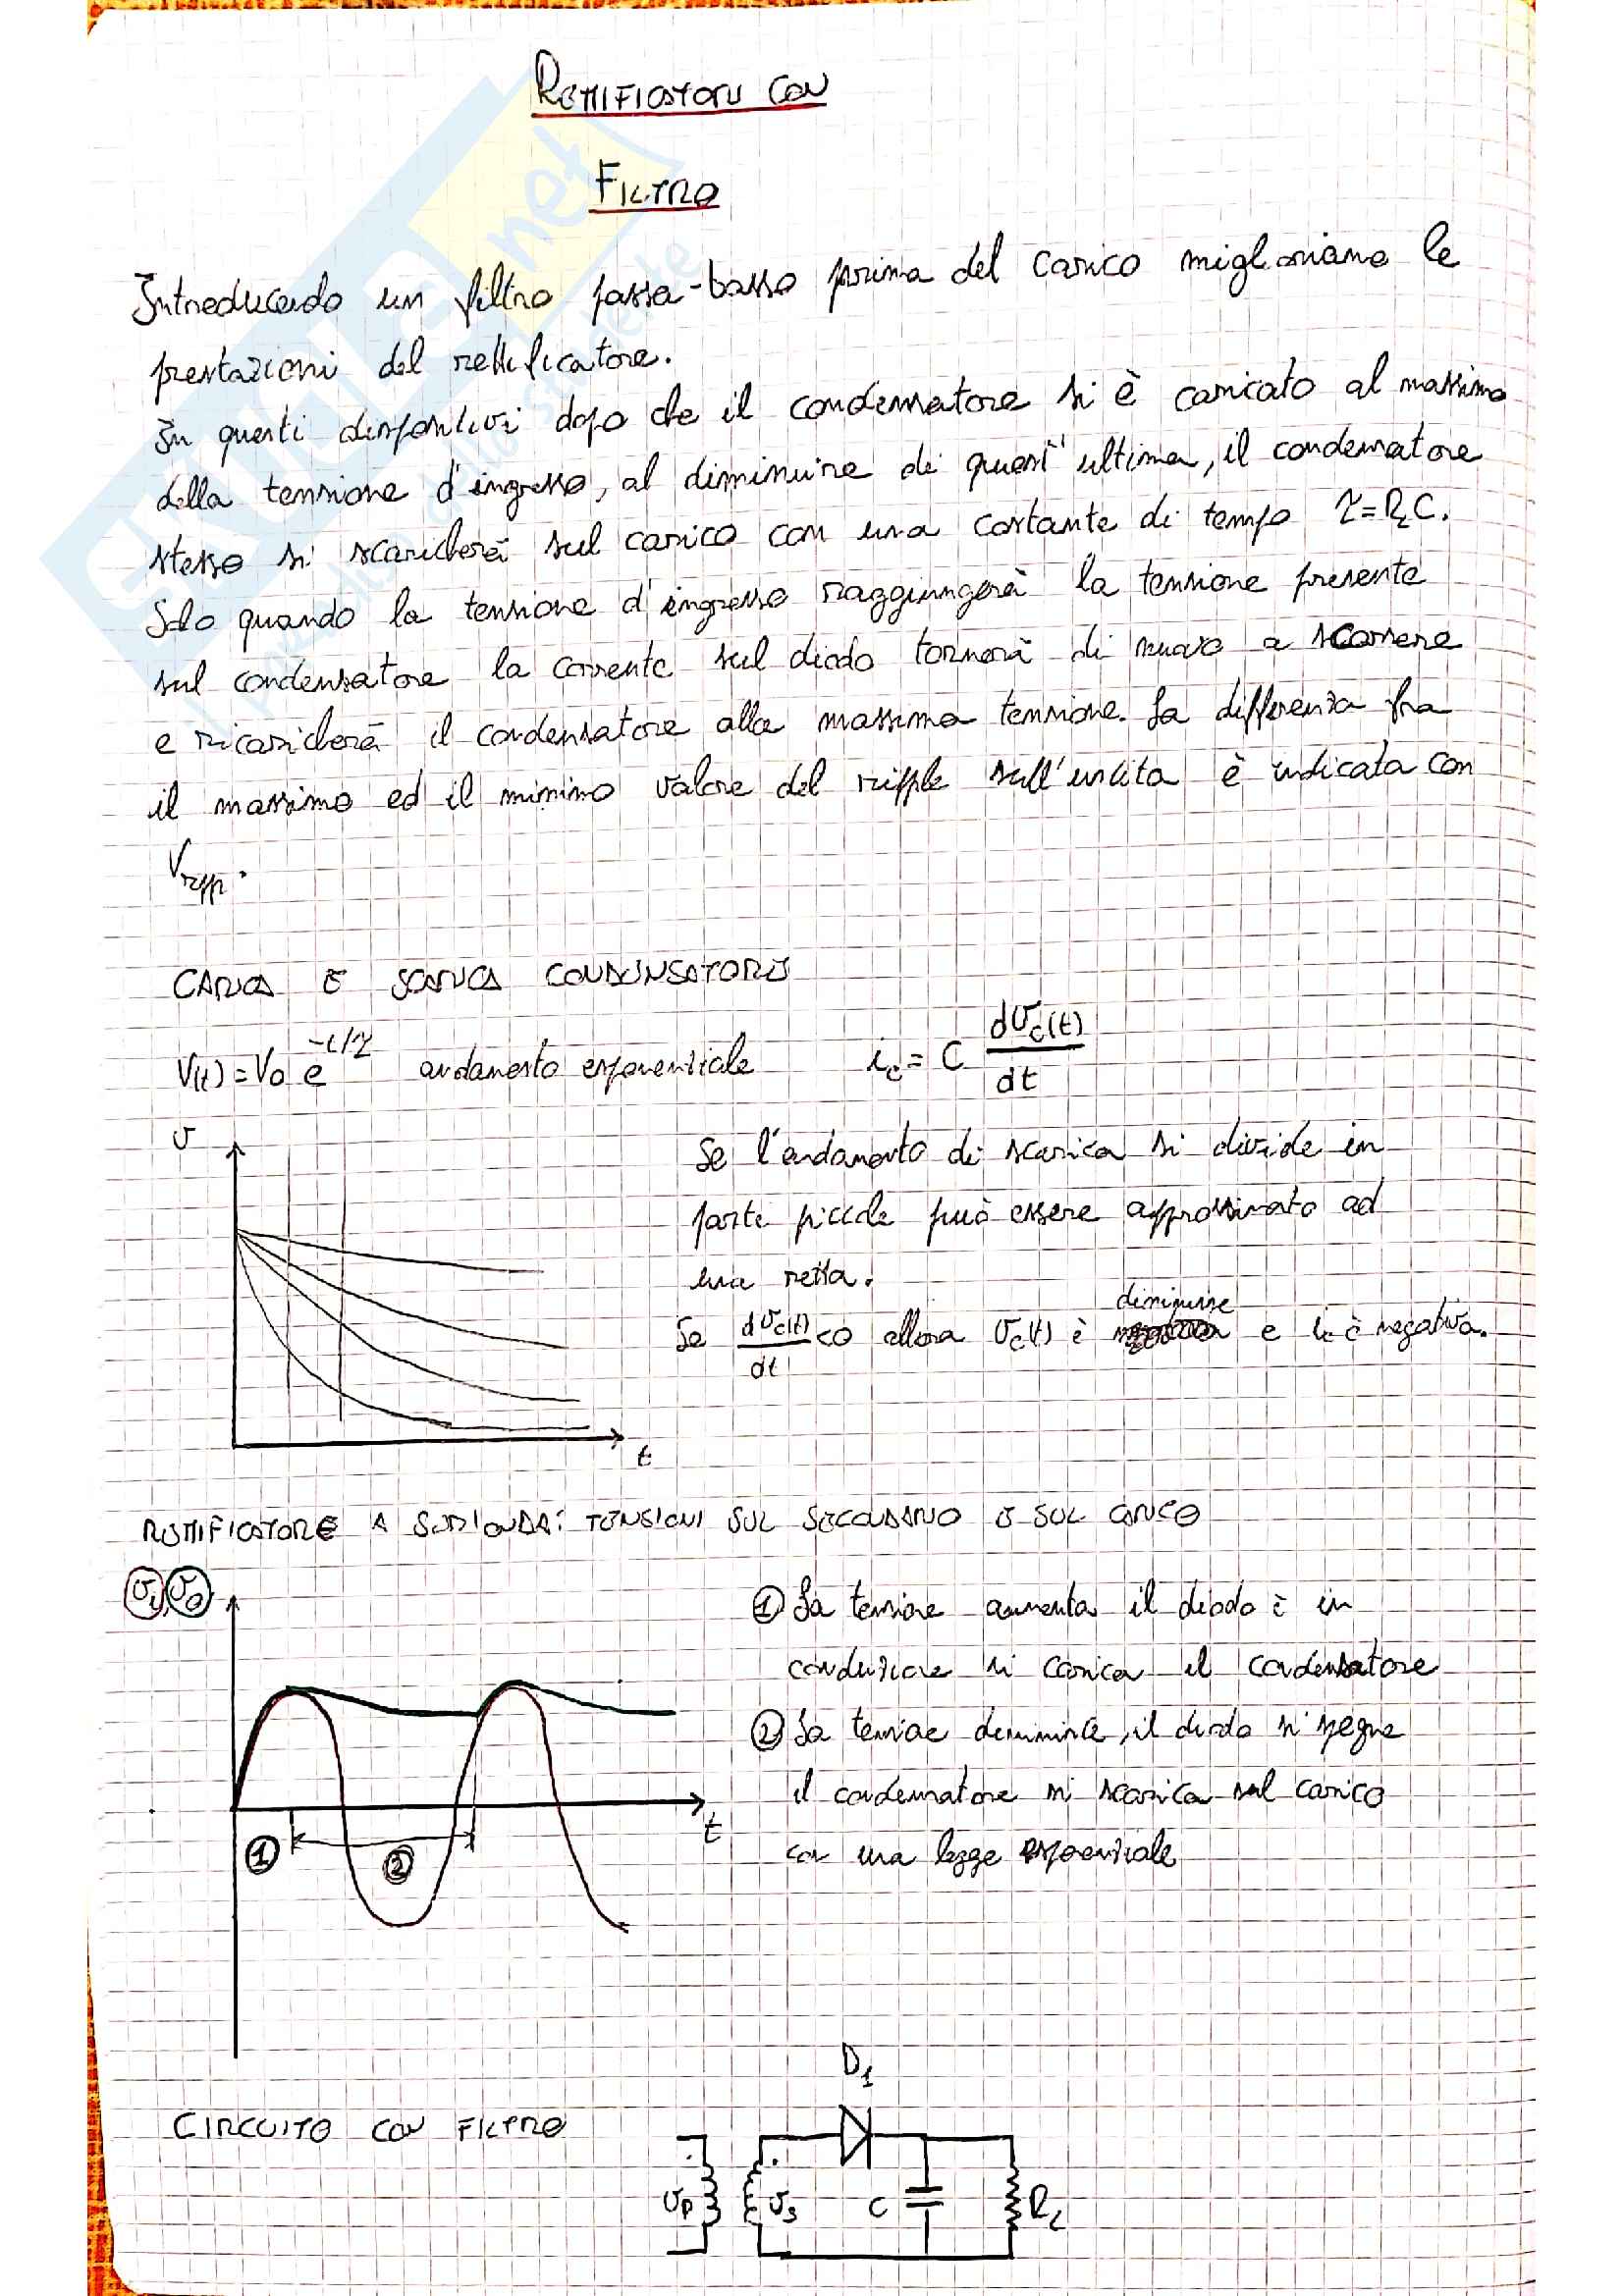 RETTIFICATORI CON
FILTRO
Introducendo un filtro passa-basso prima del carico miglioriamo le
prestazioni del rettificatore.
In questi dispositivi dopo che il condensatore si è caricato al massimo
della tensione d'ingresso, al diminuire di quest'ultima, il condensatore
stesso si scaricherà sul carico con una costante di tempo τ=RLC.
Solo quando la tensione d'ingresso raggiungerà la tensione presente
sul condensatore la corrente sul diodo tornerà di nuovo a scorrere
e ricaricherà il condensatore alla massima tensione. La differenza fra
il massimo ed il minimo valore del ripple sull'uscita è indicata con
Vrpp.
CARICA E SCARICA CONDENSATORE
V(t)=V0 e^-t/τ andamento esponenziale ic = C dvc(t)/dt
v
Se l'andamento di scarica si divide in
parti piccole può essere approssimato ad
una retta.
Se dvc(t)/dt <0 allora vc(t) è diminuisce e ic è negativa.
t
RETTIFICATORE A SEMIONDA: TENSIONI SUL SECONDARIO E SUL CARICO
vi, vo
① La tensione aumenta il diodo è in
conduzione si carica il condensatore
② La tensione diminuisce, il diodo si spegne
il condensatore si scarica sul carico
con una legge esponenziale
t
① ②
CIRCUITO CON FILTRO
D1
vp vs C RL
SKUOLA.net